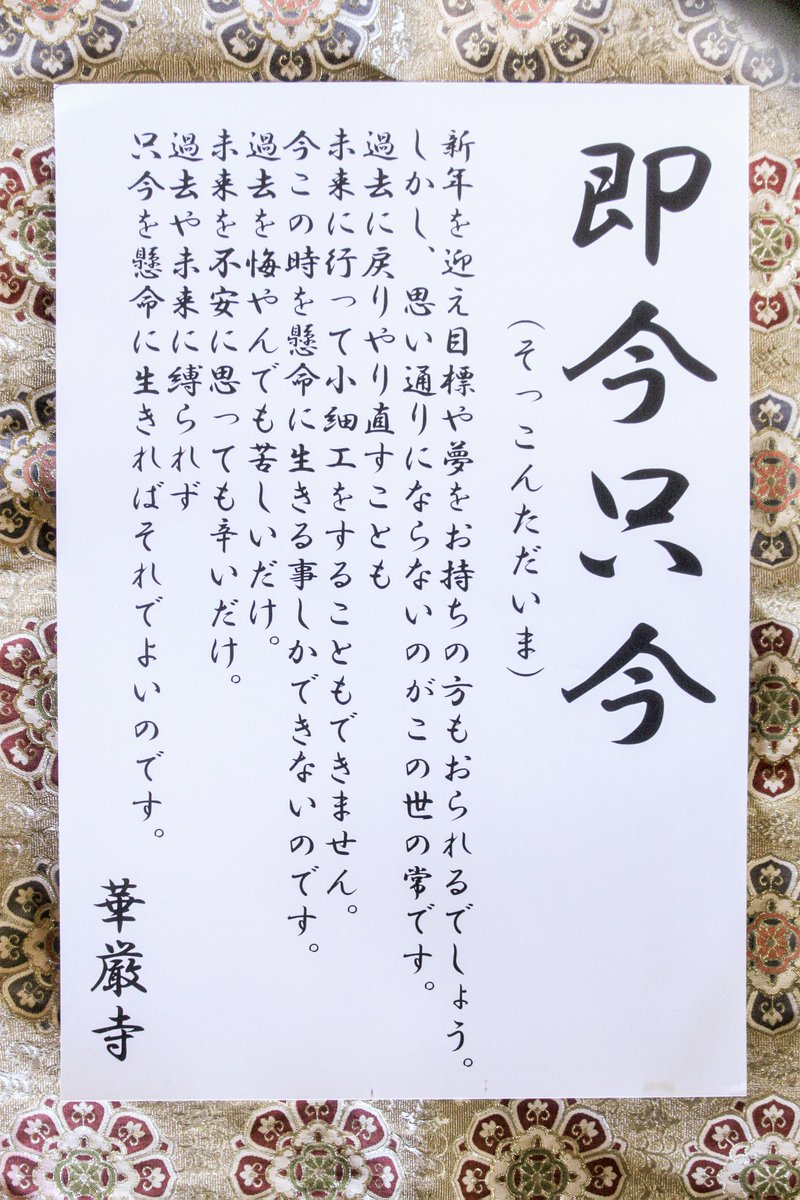 即今只今
（そっこんただいま）
新年を迎え目標や夢をお持ちの方もおられるでしょう。
しかし、思い通りにならないのがこの世の常です。
過去に戻りやり直すことも
未来に行って小細工をすることもできません。
今この時を懸命に生きる事しかできないのです。
過去を悔やんでも苦しいだけ。
未来を不安に思っても辛いだけ。
過去や未来に縛られず
只今を懸命に生きればそれでよいのです。
華厳寺